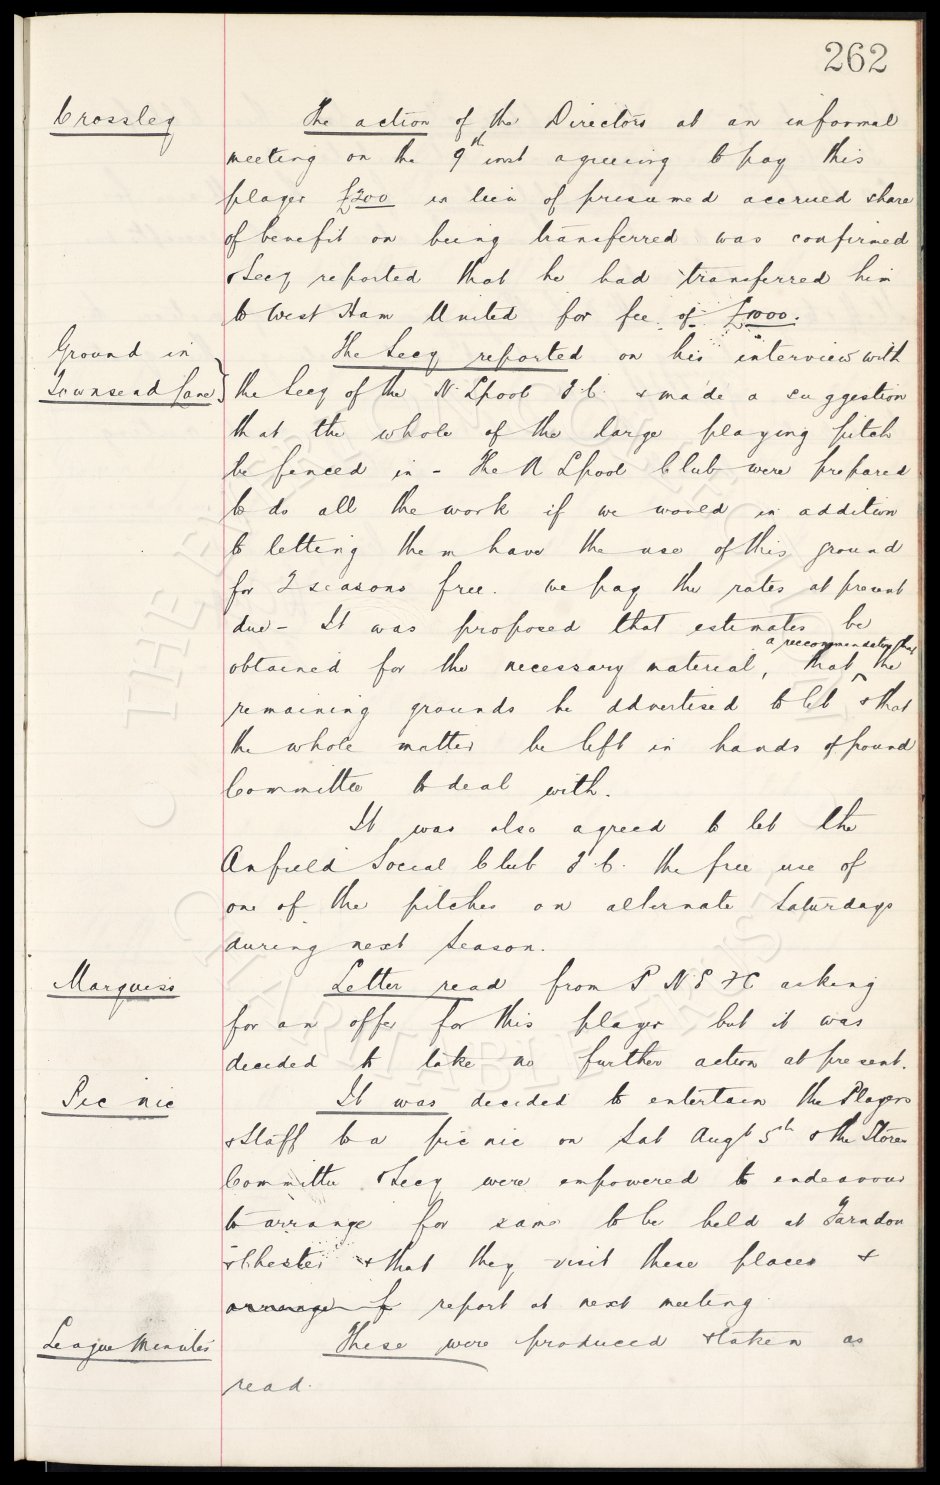 262
Crossley
The action of the Directors at an informal
meeting on the 9th inst agreeing to pay this
player £200 in lieu of presumed accrued share
of benefit on being transferred was confirmed
& Secy reported that he had transferred him
to West Ham United for fee of £1000.
Ground in
Townsend Lane }
The Secy reported on his interview with
the Secy of the N. Lpool F.C. & made a suggestion
that the whole of the large playing pitch
be fenced in - The N Lpool Club were prepared
to do all the work if we would in addition
to letting them have the use of this ground
for 2 seasons free. we pay the rates at present
due - It was proposed that estimates be
obtained for the necessary material, a reccommendation that the
remaining grounds be advertised to let & that
the whole matter be left in hands of Ground
Committee to deal with.
It was also agreed to let the
Anfield Social Club F.C. the free use of
one of the pitches on alternate Saturdays
during next Season.
Marquiss
Letter read from P N E FC asking
for an offer for this player but it was
decided to take no further action at present.
Pic nic
It was decided to entertain the Players
& Staff to a pic nic on Sat Augt 5th & the Stores
Committee & Secy were empowered to endeavour
to arrange for same to be held at Farndon
& Chester & that they visit these places &
arrange f report at next meeting
League Minutes
These were produced & taken as
read.